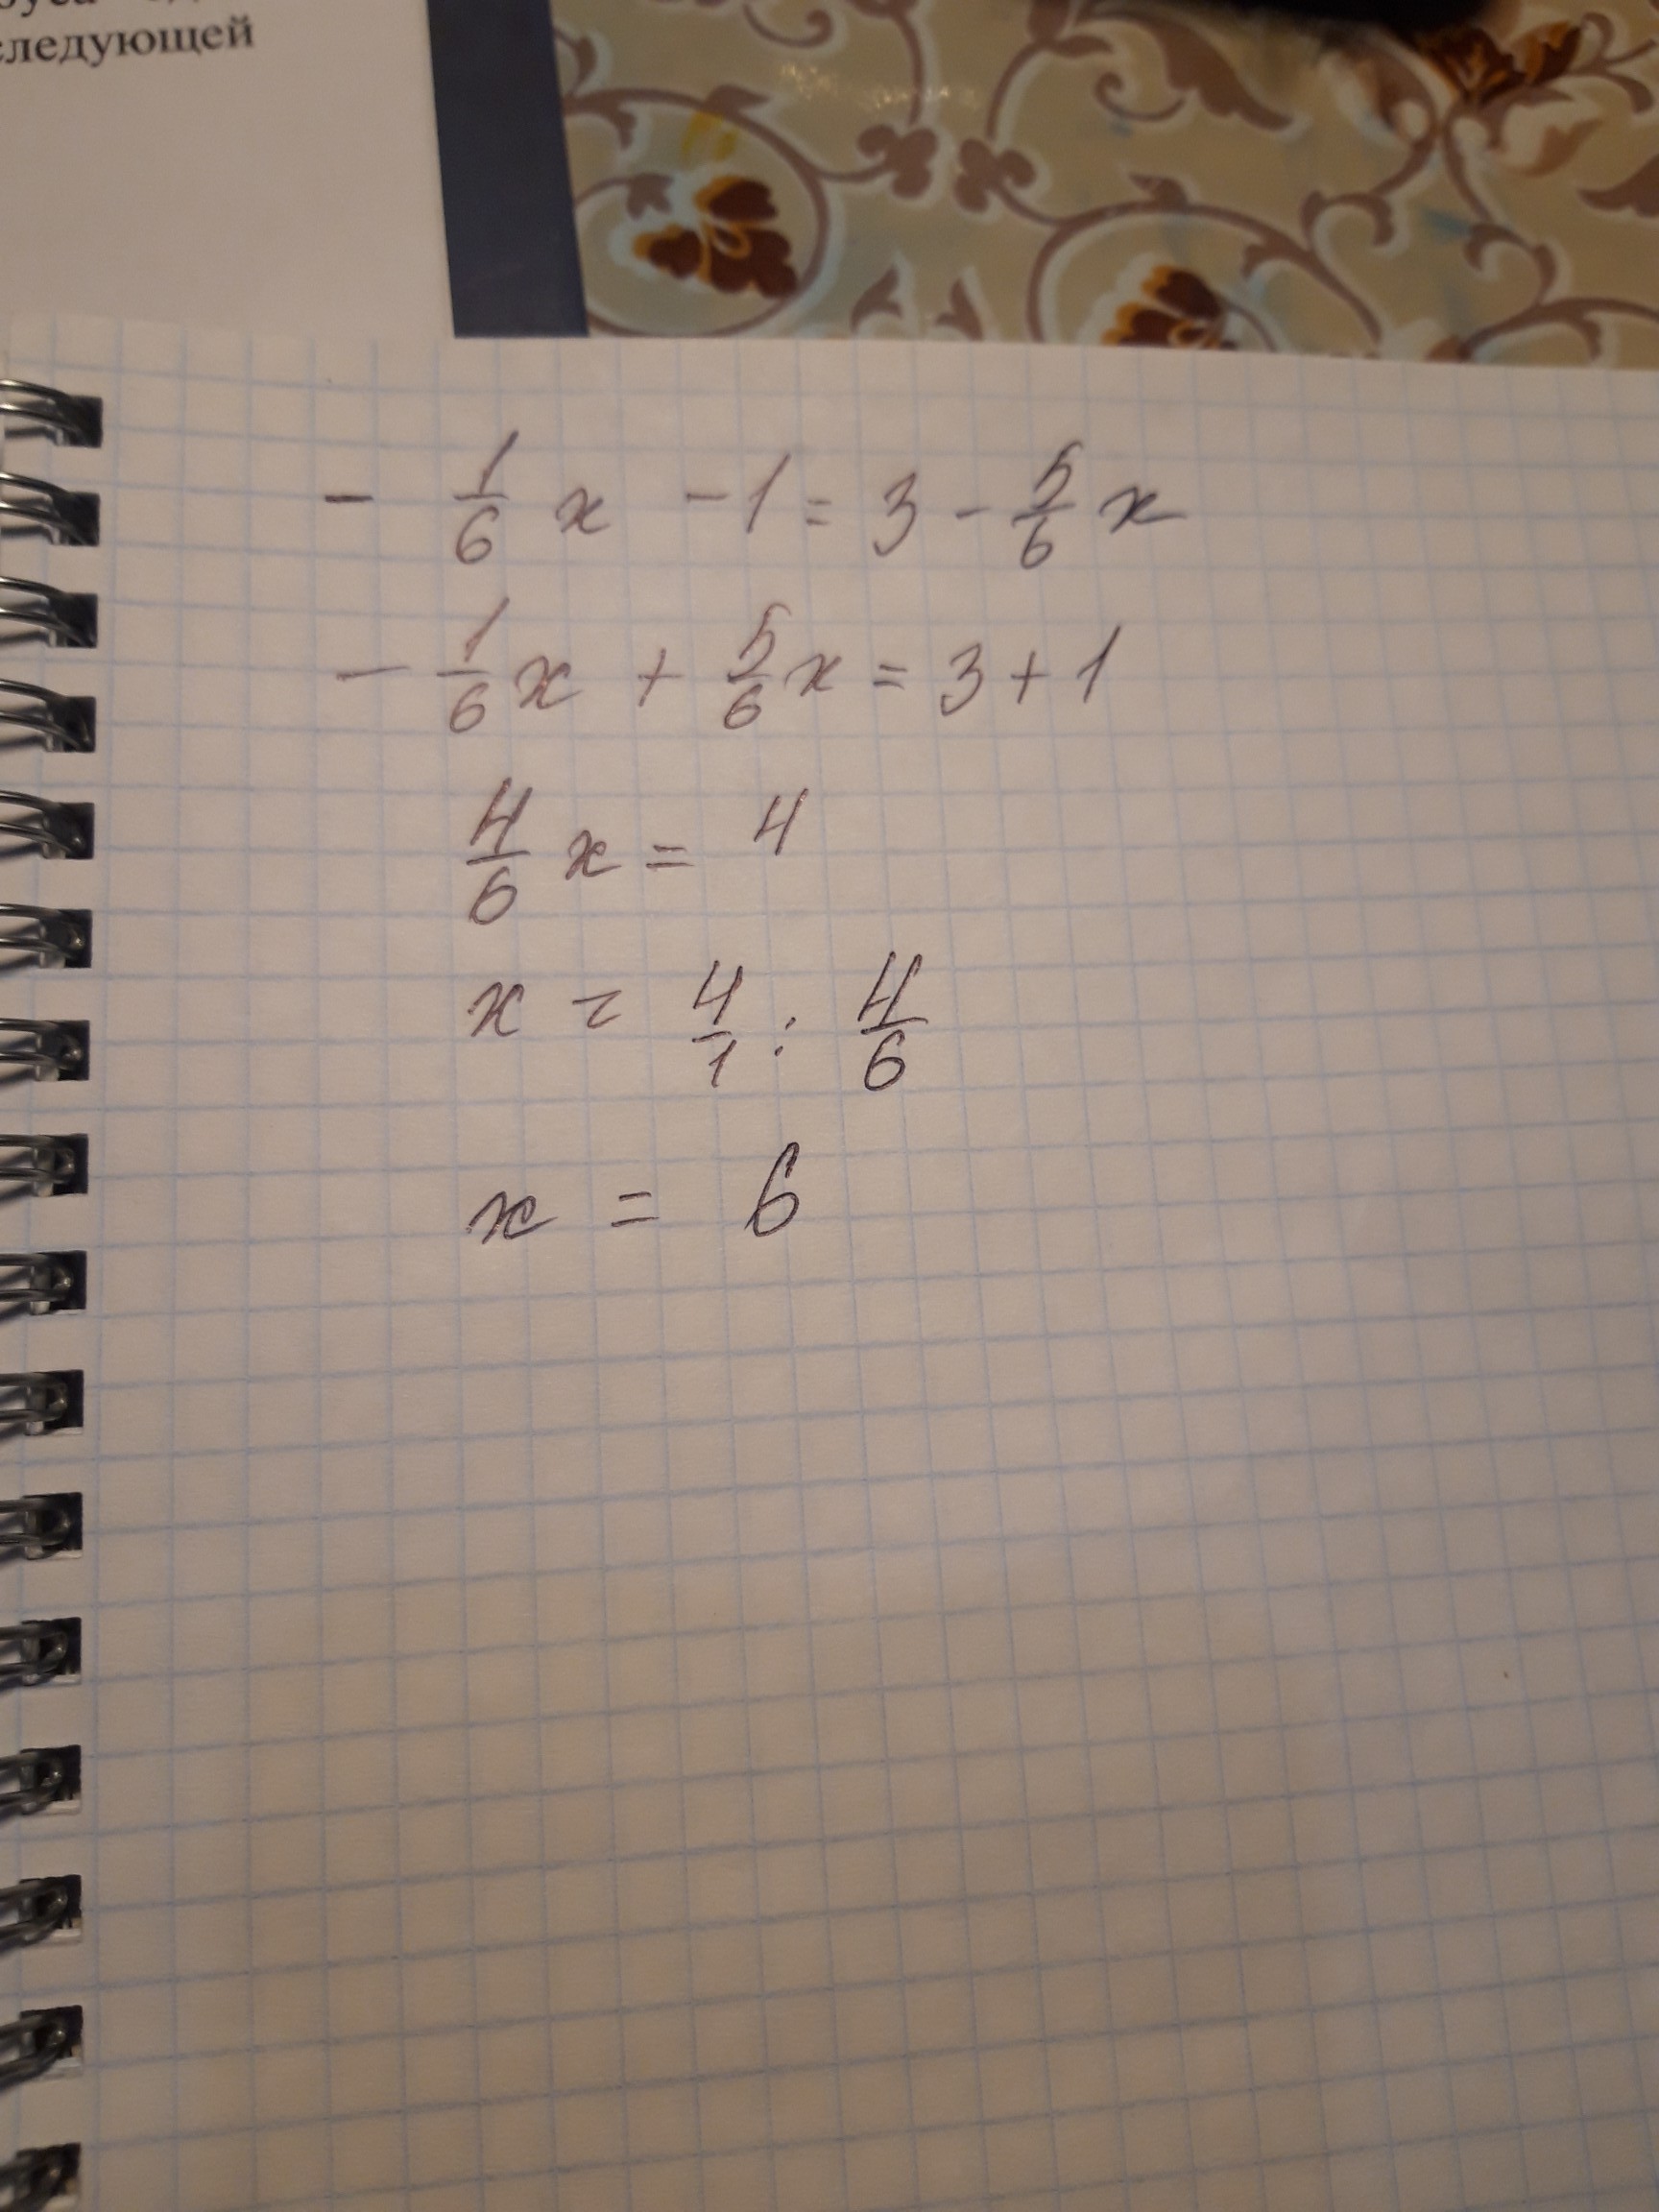 следующей
- 1/6 x - 1 = 3 - 5/6 x
- 1/6 x + 5/6 x = 3 + 1
4/6 x = 4
x = 4/1 : 4/6
x = 6